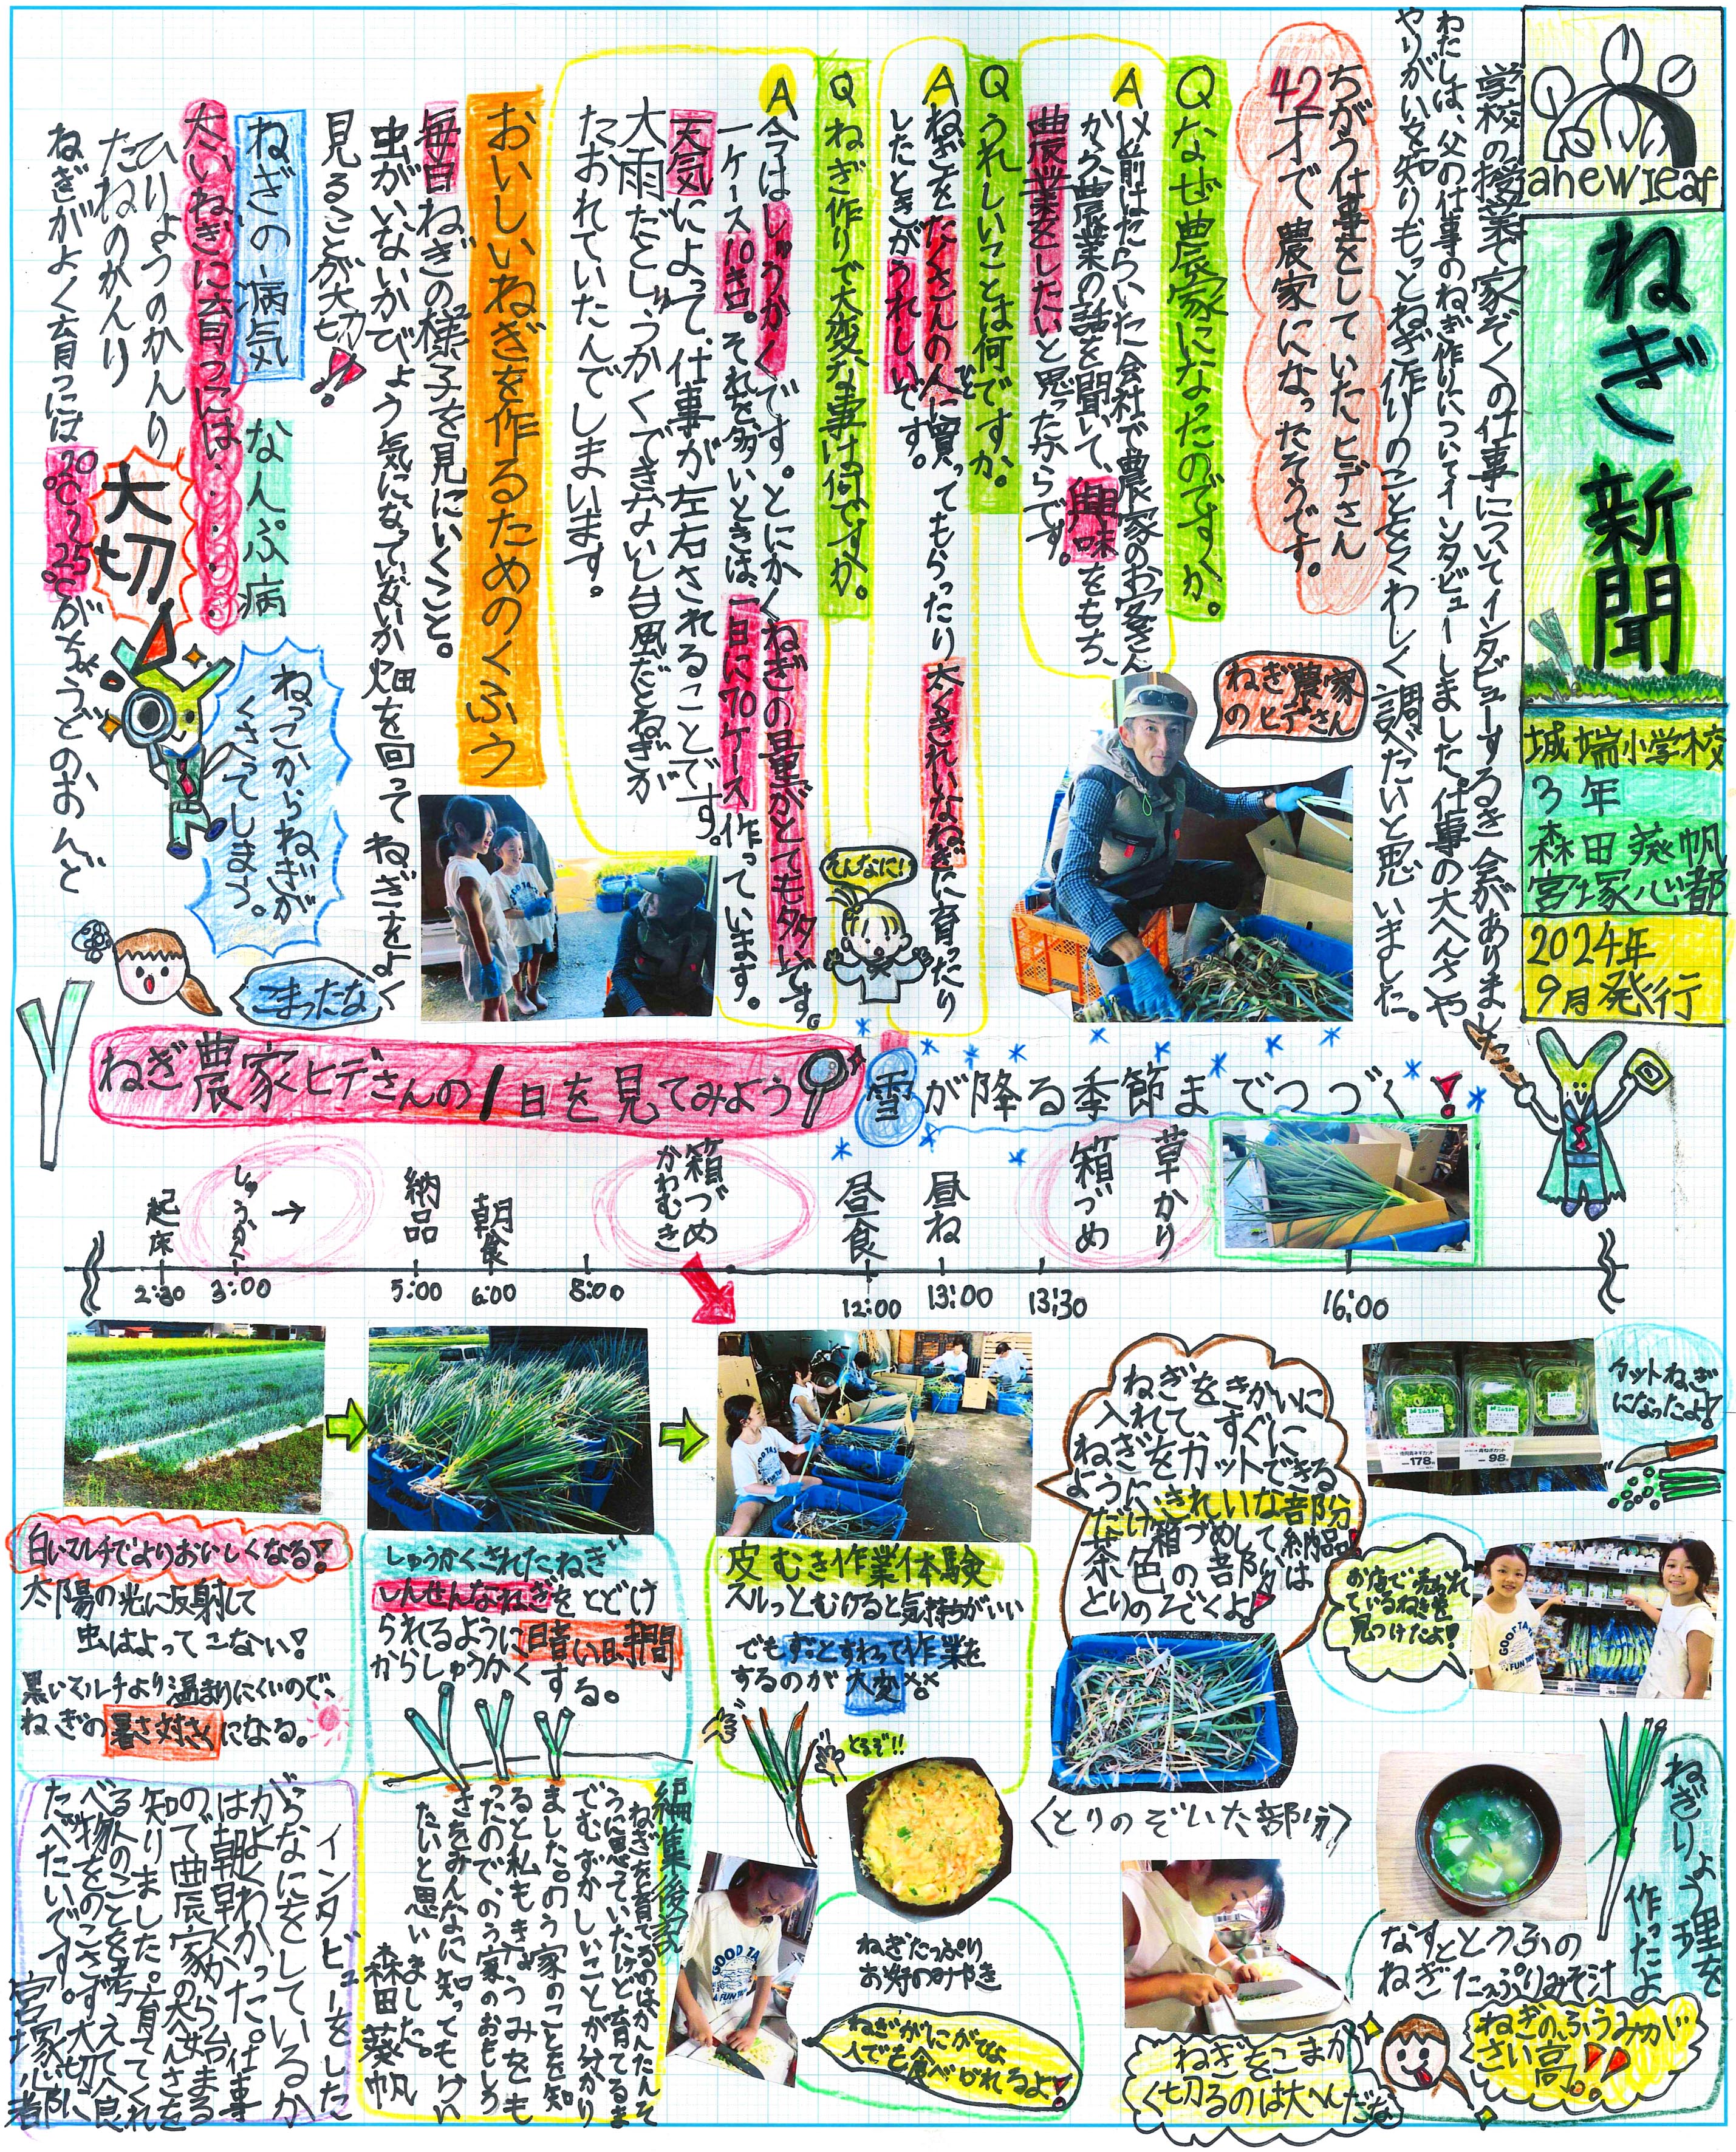 anewleaf
ねぎ新聞
城端小学校
3年
森田葵帆
宮塚心都
2024年
9月発行
学校の授業で家ぞくの仕事についてインタビューするき会がありました。
わたしは、父の仕事のねぎ作りについてインタビューしました。仕事の大へんさや
やりがいを知りもっとねぎ作りのことをくわしく調べたいと思いました。
ちがう仕事をしていたヒデさん
42才で農家になったそうです。
Qなぜ農家になったのですか。
A以前はたらいた会社で農家のお客さん
から農業の話を聞いて、興味をもち、
農業をしたいと思ったからです。
ねぎ農家
のヒデさん
Qうれしいことは何ですか。
Aねぎをたくさんの人に買ってもらったり太くきれいなねぎに育ったり
ひと
したときがうれしいです。
Qねぎ作りで大変な事は何ですか。
A今はしゅうかくです。とにかくねぎの量がとても多いです。
一ケース10キロ。それを多いときは、一日に70ケース作っています。
天気によって、仕事が左右されることです。
大雨だとしゅうかくできないし台風だとねぎが
たおれていたんでしまいます。
そんなに!
おいしいねぎを作るためのくふう
毎日ねぎの様子を見にいくこと。
虫がいないかびょう気になっていないか畑を回ってねぎをよく
見ることが大切!!
ねぎの病気
なんぷ病
ねっこからねぎが
くさってしまう。
こまったな
太いねぎに育つには……
ひりょうのかんり
たねのかんり
大切!
ねぎがよく育つには20℃~25℃がちょうどのおんど
ねぎ農家ヒデさんの1日を見てみよう
雪が降る季節までつづく!
起床
しゅうかく→
納品
朝食
箱づめ
かわむき
昼食
昼ね
箱づめ
草かり
2:30
3:00
5:00
6:00
8:00
12:00
13:00
13:30
16:00
白いマルチでよりおいしくなる!
太陽の光に反射して
虫はよってこない!
黒いマルチより温まりにくいので、
ねぎの暑さ対さくになる。
しゅうかくされたねぎ
しんせんなねぎをとどけ
られるように暗い時間
からしゅうかくする。
皮むき作業体験
スルっとむけると気持ちがいい
でもずっとすわって作業を
するのが大変××。
とるぞ!!
ねぎをきかいに
入れて、すぐに
ねぎをカットできる
ように、きれいな部分
だけ箱づめして納品!
茶色の部分は
とりのぞくよ!
<とりのぞいた部分>
178
98
カットねぎ
になったよ!
お店で売られ
ているねぎを
見つけたよ!
GOOD TA
FUN
ねぎりょう理を
作ったよ
なすととうふの
ねぎたっぷりみそ汁
ねぎのふうみがい
さい高!!
ねぎをこまか
く切るのは大へんだな
ねぎたっぷり
お好みやき
ねぎがにがてな
人でも食べられるよ!
GOOD TA
編集後記
ねぎを育てるのはかんたんそ
うに思っていたけど育てるま
でむずかしいことが分かり
ました。のう家のことを知
ると私もきょうみをも
ったので、のう家のおもしろ
さをみんなに知ってもらい
たいと思いました。
森田葵帆
インタビューをした
がどうなにをしているか
がよくわかった。仕事
は朝早くから始まる
ので農家の大へんさを
知りました。育ててくれ
る人のことを考えて食
べ物をのこさず大切に
たべたいです。
宮塚心都